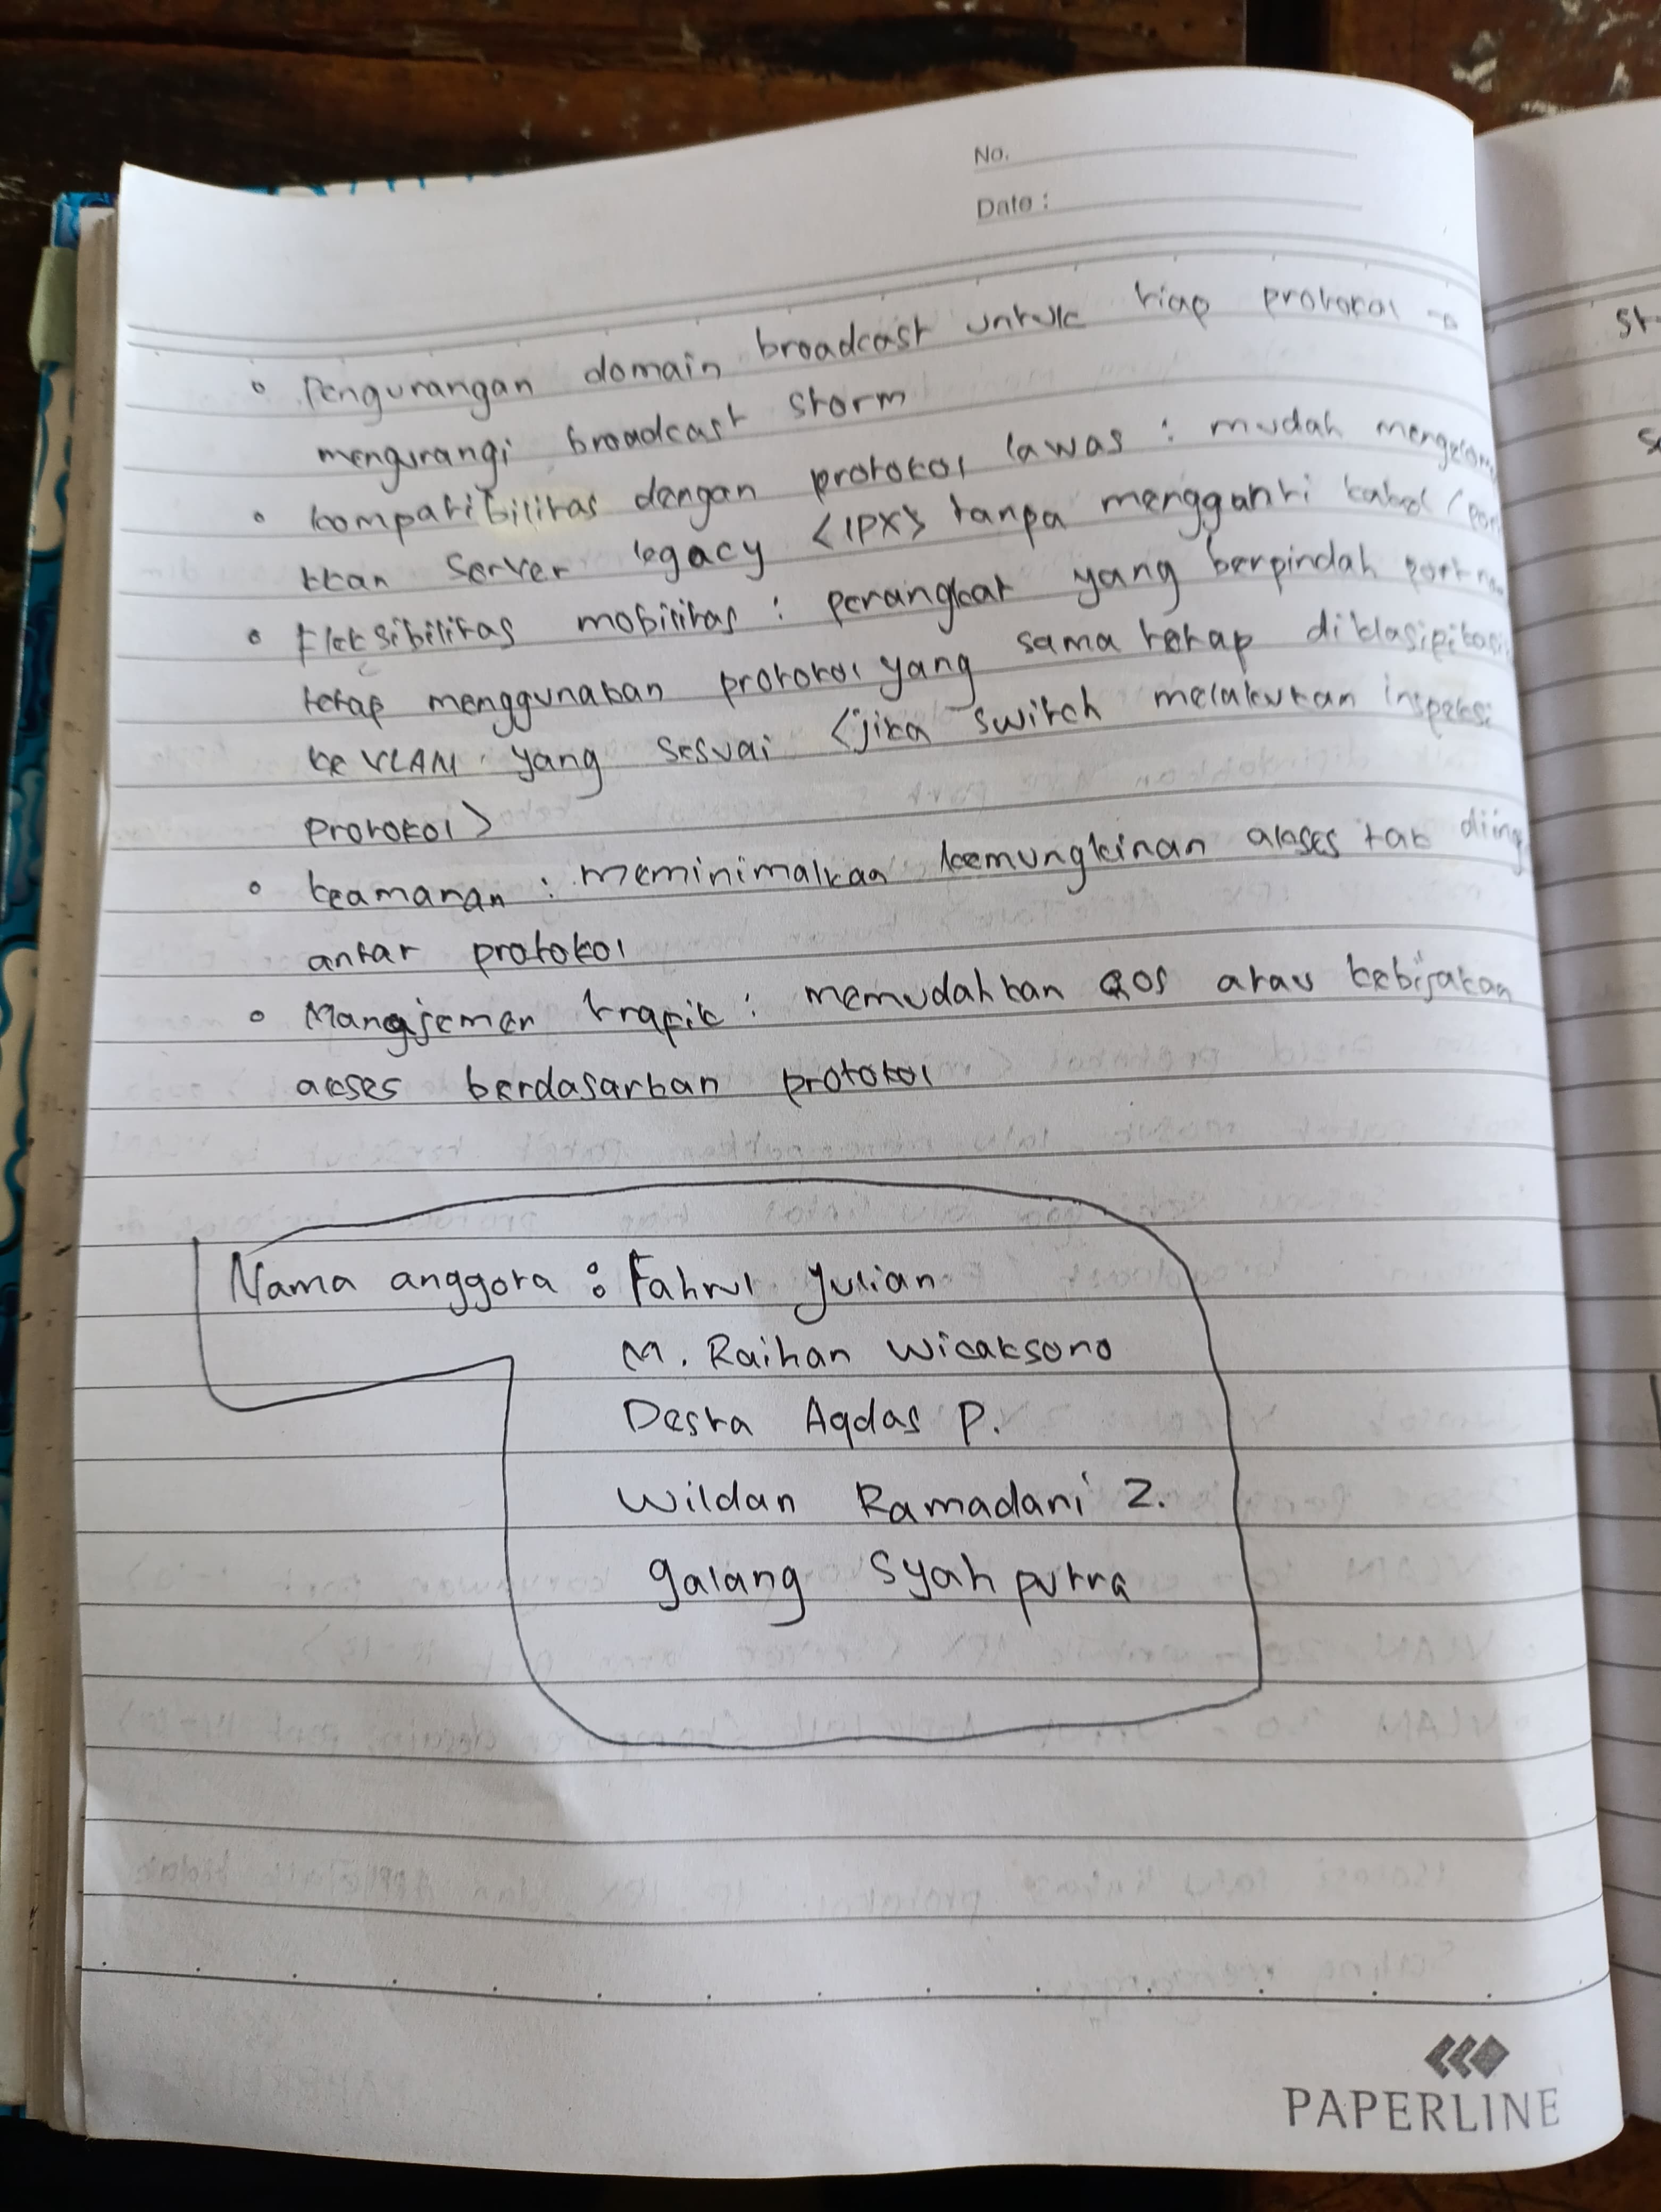 No.
Date :
• Pengurangan domain broadcast untuk tiap protokol →
mengurangi broadcast storm
• kompatibilitas dengan protokol lawas : mudah
kkan server legacy <IPX> tanpa mengganti kabel /
• Fleksibilitas mobilitas : perangkat yang berpindah port
tetap menggunakan protokol yang sama tetap diklasipikasi
ke VLAN yang sesuai <jika switch melakukan inspeksi
protokol>
• keamanan : meminimalkan kemungkinan akses tak
antar protokol
• Manajemen trapik : memudahkan QOS atau kebijakan
akses berdasarkan protokol
Nama anggota : Fahrul Julian
M. Raihan Wicaksono
Desta Aqdas P.
Wildan Ramadani Z.
galang syah putra
PAPERLINE